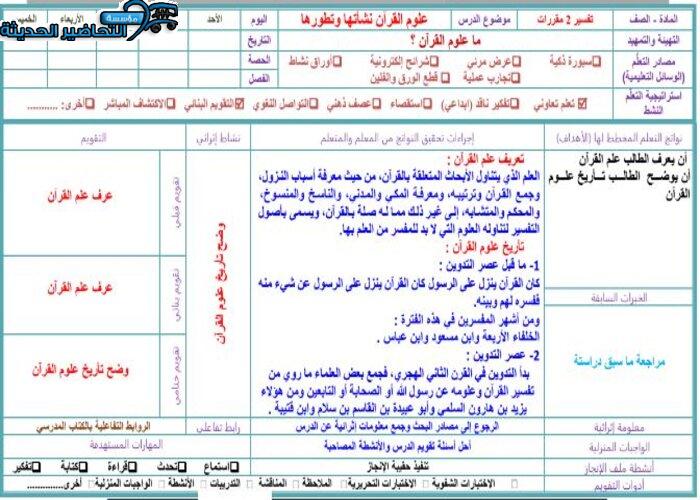 مؤسسة
التحاضير الحديثة
المادة - الصف
تفسير 2 مقررات
موضوع الدرس
علوم القرآن نشأتها وتطورها
اليوم
الأحد
الأربعاء
الخميس
التهيئة والتمهيد
ما علوم القرآن ؟
التاريخ
مصادر التعلّم
(الوسائل التعليمية)
سبورة ذكية
عرض مرئي
شرائح إلكترونية
أوراق نشاط
تجارب عملية
قطع الورق والفلين
الحصة
الفصل
استراتيجية التعلّم
النشط
تعلم تعاوني
تفكير ناقد (ابداعي)
استقصاء
عصف ذهني
التواصل اللغوي
التقويم البنائي
الاكتشاف المباشر
أخرى: ...........
نواتج التعلم المخطط لها (الأهداف)
إجراءات تحقيق النواتج من المعلم والمتعلم
نشاط إثرائي
التقويم
أن يعرف الطالب علم القرآن
أن يوضح الطالب تأريخ علوم
القرآن
الخبرات السابقة
مراجعة ما سبق دراستة
تعريف علم القرآن :
العلم الذي يتناول الأبحاث المتعلقة بالقرآن، من حيث معرفة أسباب النزول،
وجمع القرآن وترتيبه، ومعرفة المكي والمدني، والناسخ والمنسوخ،
والمحكم والمتشابه، إلى غير ذلك مما له صلة بالقرآن، ويسمى بأصول
التفسير لتناوله العلوم التي لا بد للمفسر من العلم بها.
تأريخ علوم القرآن :
1- ما قبل عصر التدوين :
كان القرآن ينزل على الرسول كان القرآن ينزل على الرسول عن شيء منه
ففسره لهم وبينه.
ومن أشهر المفسرين في هذه الفترة :
الخلفاء الأربعة وابن مسعود وابن عباس .
2- عصر التدوين :
بدأ التدوين في القرن الثاني الهجري، فجمع بعض العلماء ما روي من
تفسير القرآن وعلومه عن رسول الله أو الصحابة أو التابعين ومن هؤلاء
يزيد بن هارون السلمي وأبو عبيدة بن القاسم بن سلام وابن قتيبة .
وضح تأريخ علوم القرآن
تقويم قبلي
عرف علم القرآن
تقويم بنائي
عرف علم القرآن
تقويم ختامي
وضح تأريخ علوم القرآن
معلومة إثرائية
الرجوع إلى مصادر البحث وجمع معلومات إثرائية عن الدرس
رابط تفاعلي
الروابط التفاعلية بالكتاب المدرسي
الواجبات المنزلية
أحل أسئلة تقويم الدرس والأنشطة المصاحبة
المهارات المستهدفة
أنشطة ملف الإنجاز
تنفيذ حقيبة الإنجاز
استماع
تحدث
قراءة
كتابة
تفكير
أدوات التقويم
الاختبارات الشفوية
الاختبارات التحريرية
الملاحظة
المناقشة
التدريبات
الأنشطة
الواجبات المنزلية
أخرى..............